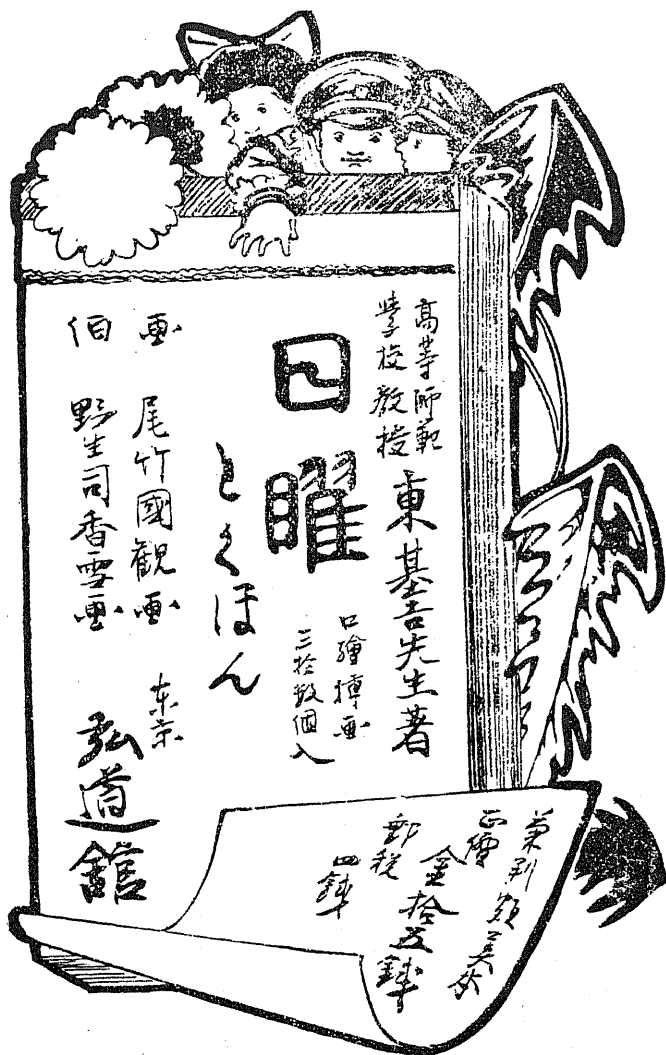 高等師範
学校教授
東基吉先生著
日曜
とくほん
口繪挿画
三拾数個入
画 尾竹國観画
伯 野生司香雪画
东京
弘道館
菊判頗美本
正價
金拾五銭
郵税
四銭